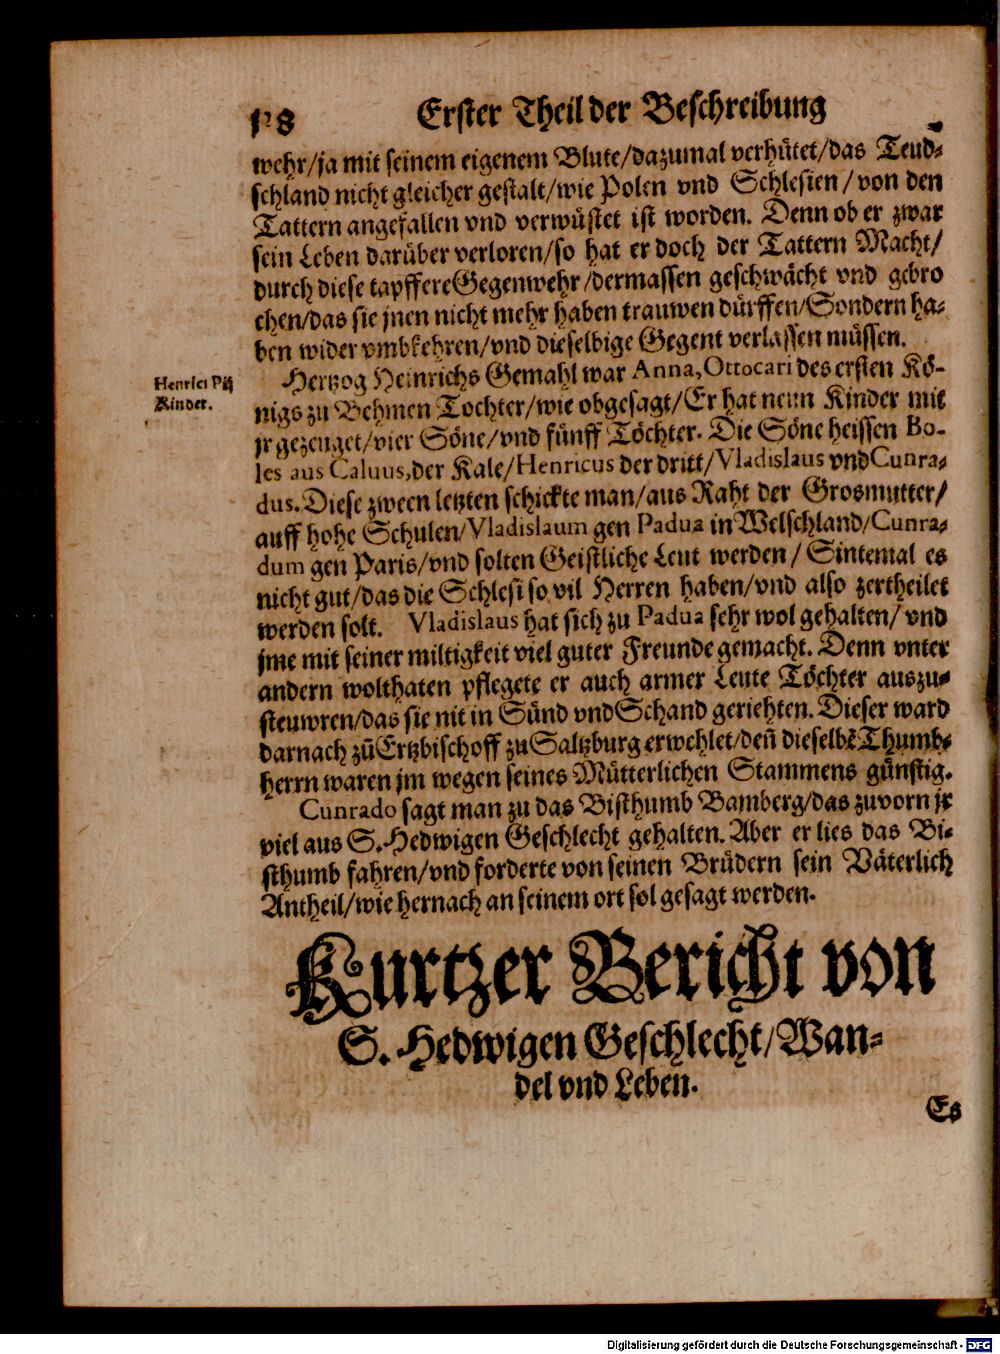 118 Erster Theil der Beschreibung
wehr/ja mit seinem eigenem Blute/dazumal verhütet/das Teud-
schland nicht gleicher gestalt/wie Polen vnd Schlesien/von den
Tattern angefallen vnd verwüstet ist worden. Denn ob er zwar
sein Leben darüber verloren/so hat er doch der Tattern Macht/
durch diese tapffere Gegenwehr/dermassen geschwächt vnd gebro
chen/das sie jnen nicht mehr haben trauwen dürffen/Sondern ha-
ben wider vmbkehren/vnd dieselbige Gegent verlassen müssen.
Hertzog Heinrichs Gemahl war Anna, Ottocari des ersten Kö-
Henrici Pij
Kinder.
nigs zu Behmen Tochter/wie obgesagt/Er hat neun Kinder mit
jr gezeuget/vier Söne/vnd fünff Töchter. Die Söne heissen Bo-
les aus Caluus, der Kale/Henricus der dritt/Vladislaus vnd Cunra-
dus. Diese zween letzten schickte man/aus Raht der Grosmutter/
auff hohe Schulen/Vladislaum gen Padua in Welschland/Cunra-
dum gen Paris/vnd solten Geistliche Leut werden/Sintemal es
nicht gut/das die Schlesi so vil Herren haben/vnd also zertheilet
werden solt. Vladislaus hat sich zu Padua sehr wol gehalten/vnd
jme mit seiner miltigkeit viel guter Freunde gemacht. Denn vnter
andern wolthaten pflegete er auch armer Leute Töchter auszu-
steuwren/das sie nit in Sünd vnd Schand geriehten. Dieser ward
darnach zũ Ertzbischoff zu Saltzburg erwehlet/deñ dieselbẽ Thumb-
herrn waren jm wegen seines Mütterlichen Stammens günstig.
Cunrado sagt man zu das Bisthumb Bamberg/das zuvorn jr
viel aus S. Hedwigen Geschlecht gehalten. Aber er lies das Bi-
sthumb fahren/vnd forderte von seinen Brüdern sein Väterlich
Antheil/wie hernach an seinem ort sol gesagt werden.
Kurtzer Bericht von
S. Hedwigen Geschlecht/Wan-
del vnd Leben.
Es
Digitalisierung gefördert durch die Deutsche Forschungsgemeinschaft - DFG